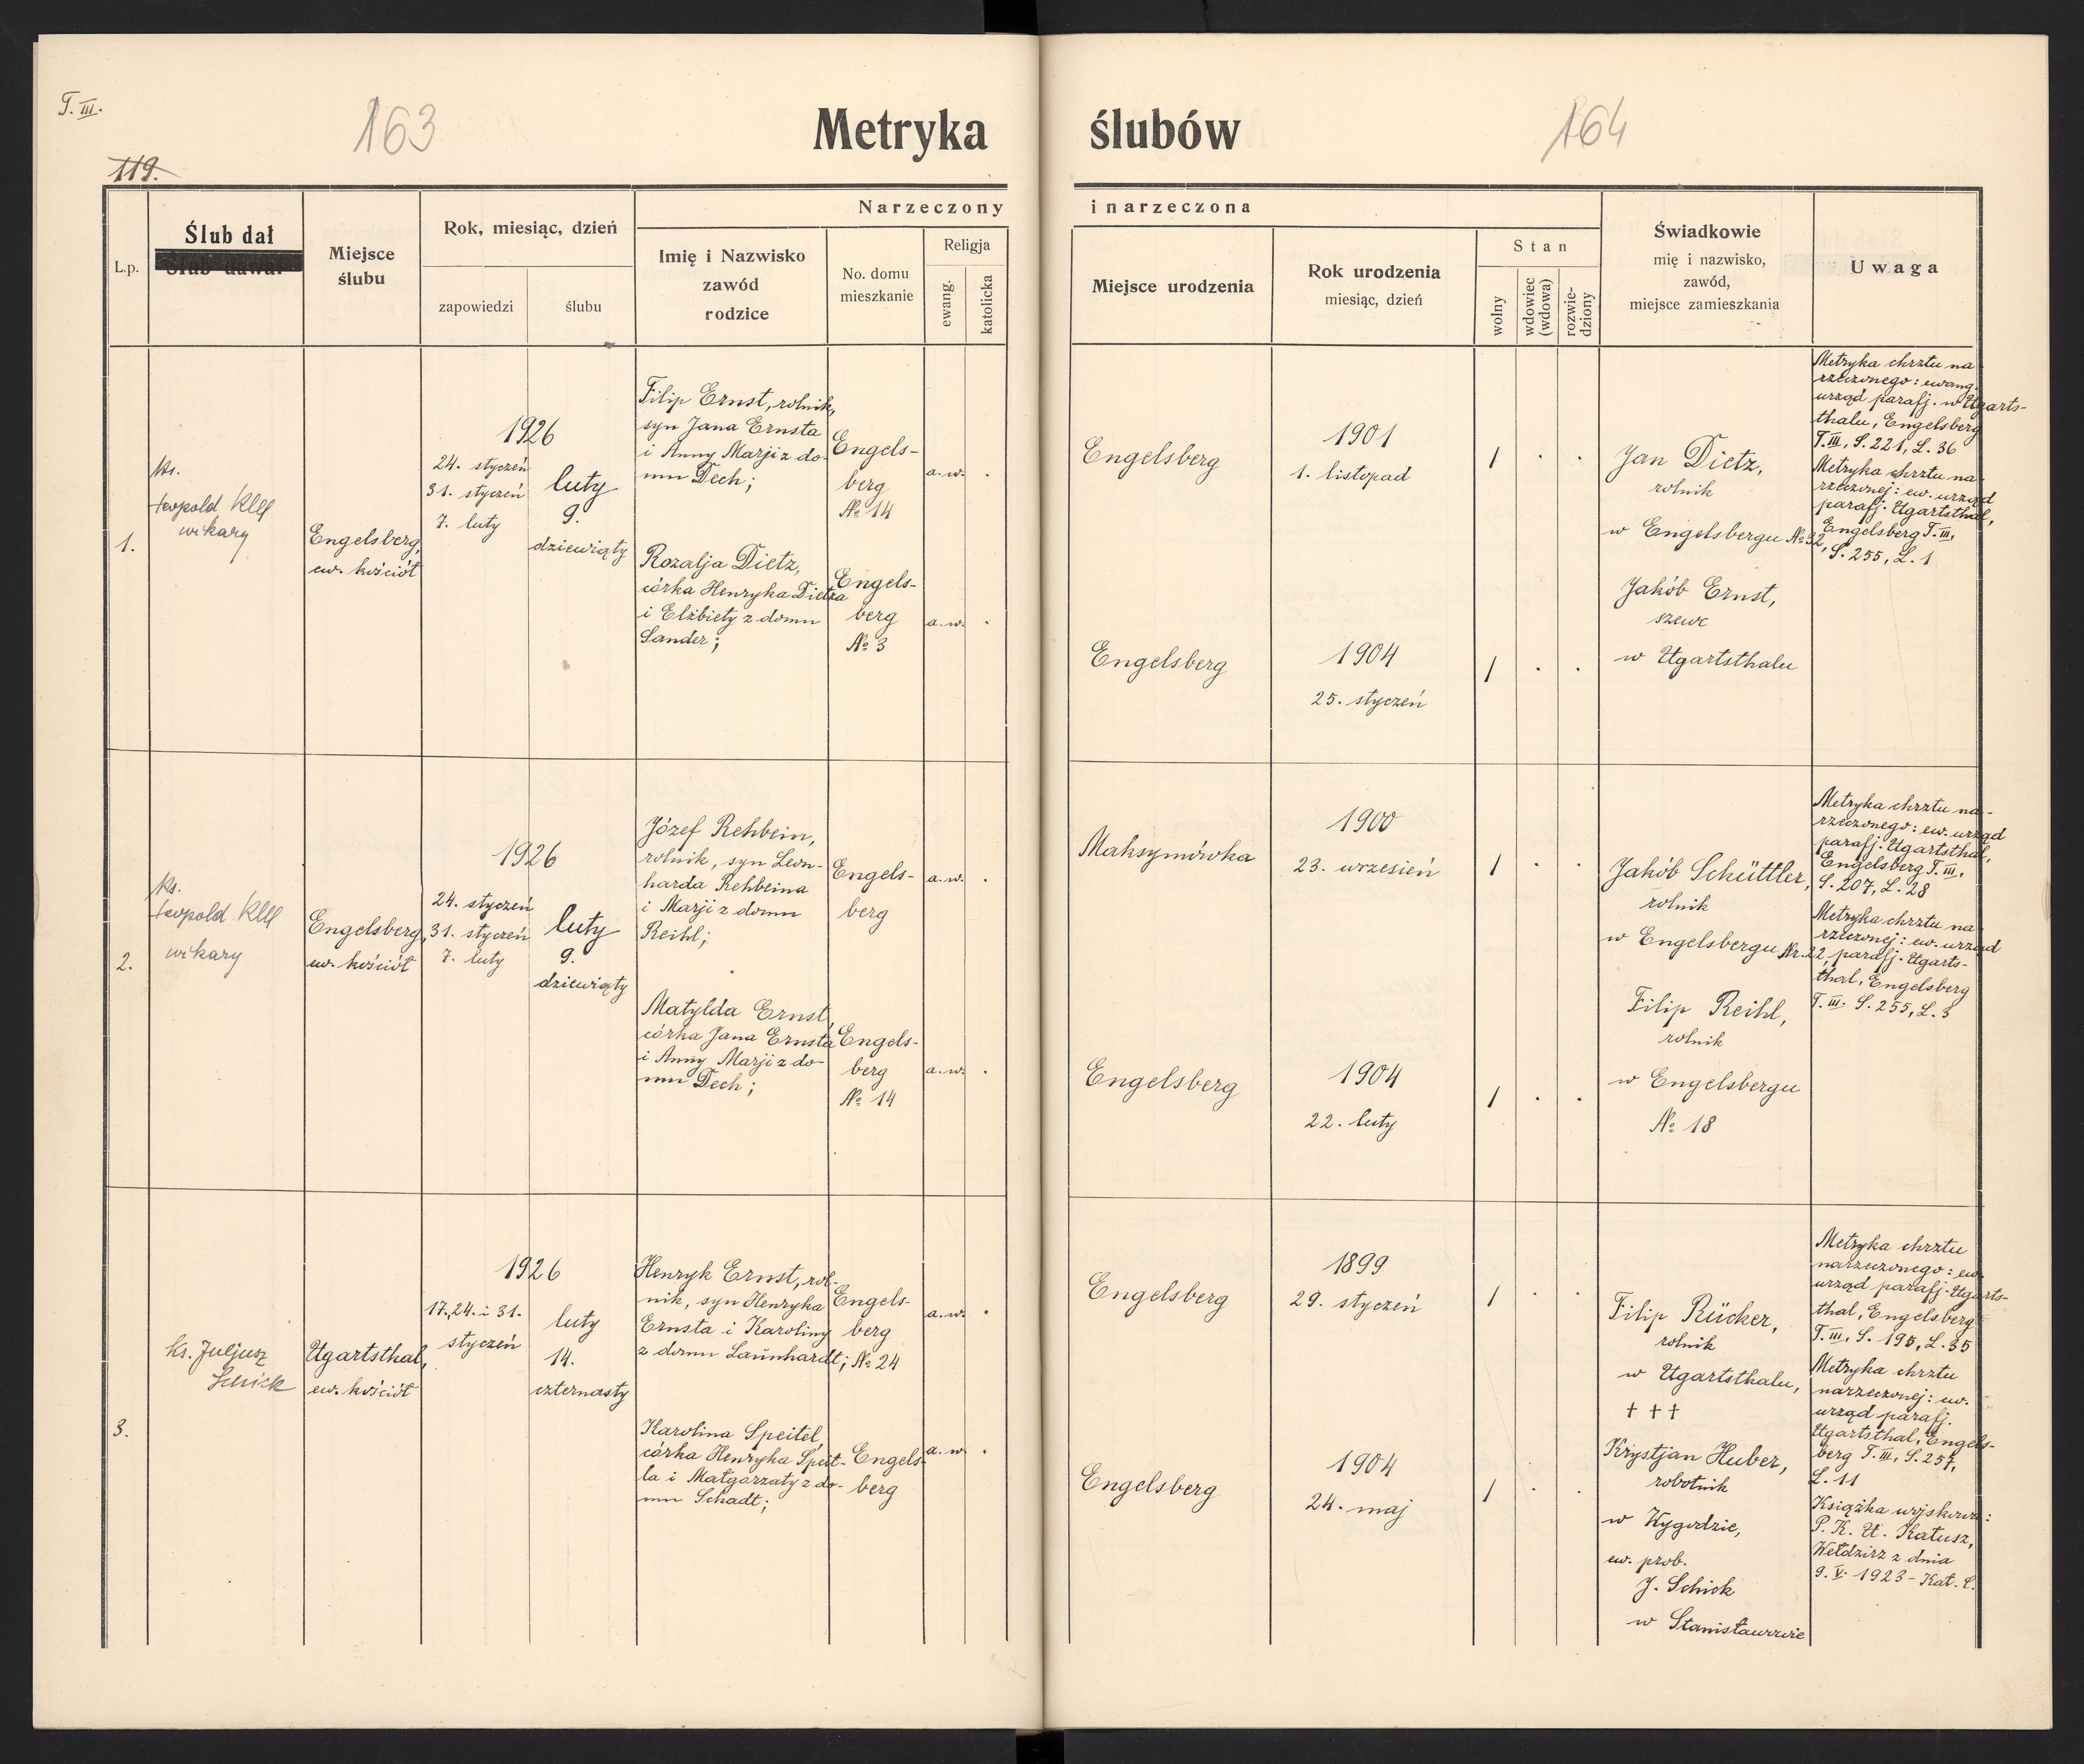 T. III.
163
Metryka ślubów
164
119.
L.p.
Ślub dał
Miejsce
ślubu
Rok, miesiąc, dzień
zapowiedzi
ślubu
Narzeczony
i narzeczona
Imię i Nazwisko
zawód
rodzice
No. domu
mieszkanie
Religja
ewang.
katolicka
Miejsce urodzenia
Rok urodzenia
miesiąc, dzień
Stan
wolny
wdowiec
(wdowa)
rozwie-
dziony
Świadkowie
mię i nazwisko,
zawód,
miejsce zamieszkania
Uwaga
1.
ks.
Leopold Klee
wikary
Engelsberg,
ew. kościół
1926
24. styczeń
31. styczeń
7. luty
luty
9.
dziewiąty
Filip Ernst, rolnik,
syn Jana Ernsta
i Anny Marji z do-
mu Dech;
Engels-
berg
№ 14
a. w.
Rozalja Dietz,
córka Henryka Dietza
i Elżbiety z domu
Sander;
Engels-
berg
№ 3
a. w.
Engelsberg
1901
1. listopad
1
Engelsberg
1904
25. styczeń
1
Jan Dietz,
rolnik
w Engelsbergu № 32,
Jakób Ernst,
szewc
w Ugartsthalu
Metryka chrztu na-
rzeczonego: ewang.
urząd parafj. w Ugarts-
thalu, Engelsberg
T. III, S. 221, L. 36
Metryka chrztu na-
rzeczonej: ew. urząd
parafj. Ugartsthal,
Engelsberg T. III,
S. 255, L. 1
2.
ks.
Leopold Klee
wikary
Engelsberg,
ew. kościół
1926
24. styczeń
31. styczeń
7. luty
luty
9.
dziewiąty
Józef Rehbein,
rolnik, syn Leon-
harda Rehbeina
i Marji z domu
Reihl;
Engels-
berg
a. w.
Matylda Ernst,
córka Jana Ernsta
i Anny Marji z do-
mu Dech;
Engels-
berg
№ 14
a. w.
Maksymówka
1900
23. wrzesień
1
Engelsberg
1904
22. luty
1
Jakób Schüttler,
rolnik
w Engelsbergu Nr. 22,
Filip Reihl,
rolnik
w Engelsbergu
№ 18
Metryka chrztu na-
rzeczonego: ew. urząd
parafj. Ugartsthal,
Engelsberg T. III,
S. 207, L. 28
Metryka chrztu na-
rzeczonej: ew. urząd
parafj. Ugarts-
thal, Engelsberg
T. III. S. 255, L. 3
3.
ks. Juljusz
Schick
Ugartsthal,
ew. kościół
1926
17., 24. i 31.
styczeń
luty
14.
czternasty
Henryk Ernst, rol-
nik, syn Henryka
Ernsta i Karoliny
z domu Launhardt;
Engels-
berg
№ 24
a. w.
Karolina Speitel,
córka Henryka Speit-
la i Małgorzaty z do-
mu Schadt;
Engels-
berg
a. w.
Engelsberg
1899
29. styczeń
1
Engelsberg
1904
24. maj
1
Filip Rücker,
rolnik
w Ugartsthalu,
† † †
Krystjan Huber,
robotnik
w Wygodzie,
ew. prob.
J. Schick
w Stanisławowie
Metryka chrztu
narzeczonego: ew.
urząd parafj. Ugarts-
thal, Engelsberg
T. III, S. 195, L. 35
Metryka chrztu
narzeczonej: ew.
urząd parafj.
Ugartsthal, Engels-
berg T. III, S. 257,
L. 11
Książka wojskowa:
P. K. U. Kałusz,
Wełdzirz z dnia
9. V. 1923 - Kat. C.